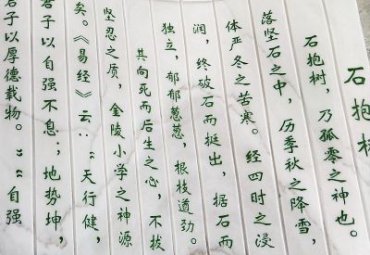 石抱
石抱树，乃孤零之神也。
落坚石之中，历季秋之降雪，
体严冬之苦寒。经四时之浸
润，终破石而挺出，据石而
独立，郁郁葱葱，根枝道劲。
其向死而后生之心，不拔
坚忍之质，金陵小学之神源
矣。《易经》云：“天行健，
君子以自强不息；地势坤，
君子以厚德载物。”“自强